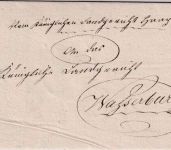 Vom Königlichen Landgericht Haag
An das
Königliche Landgericht
Wasserburg